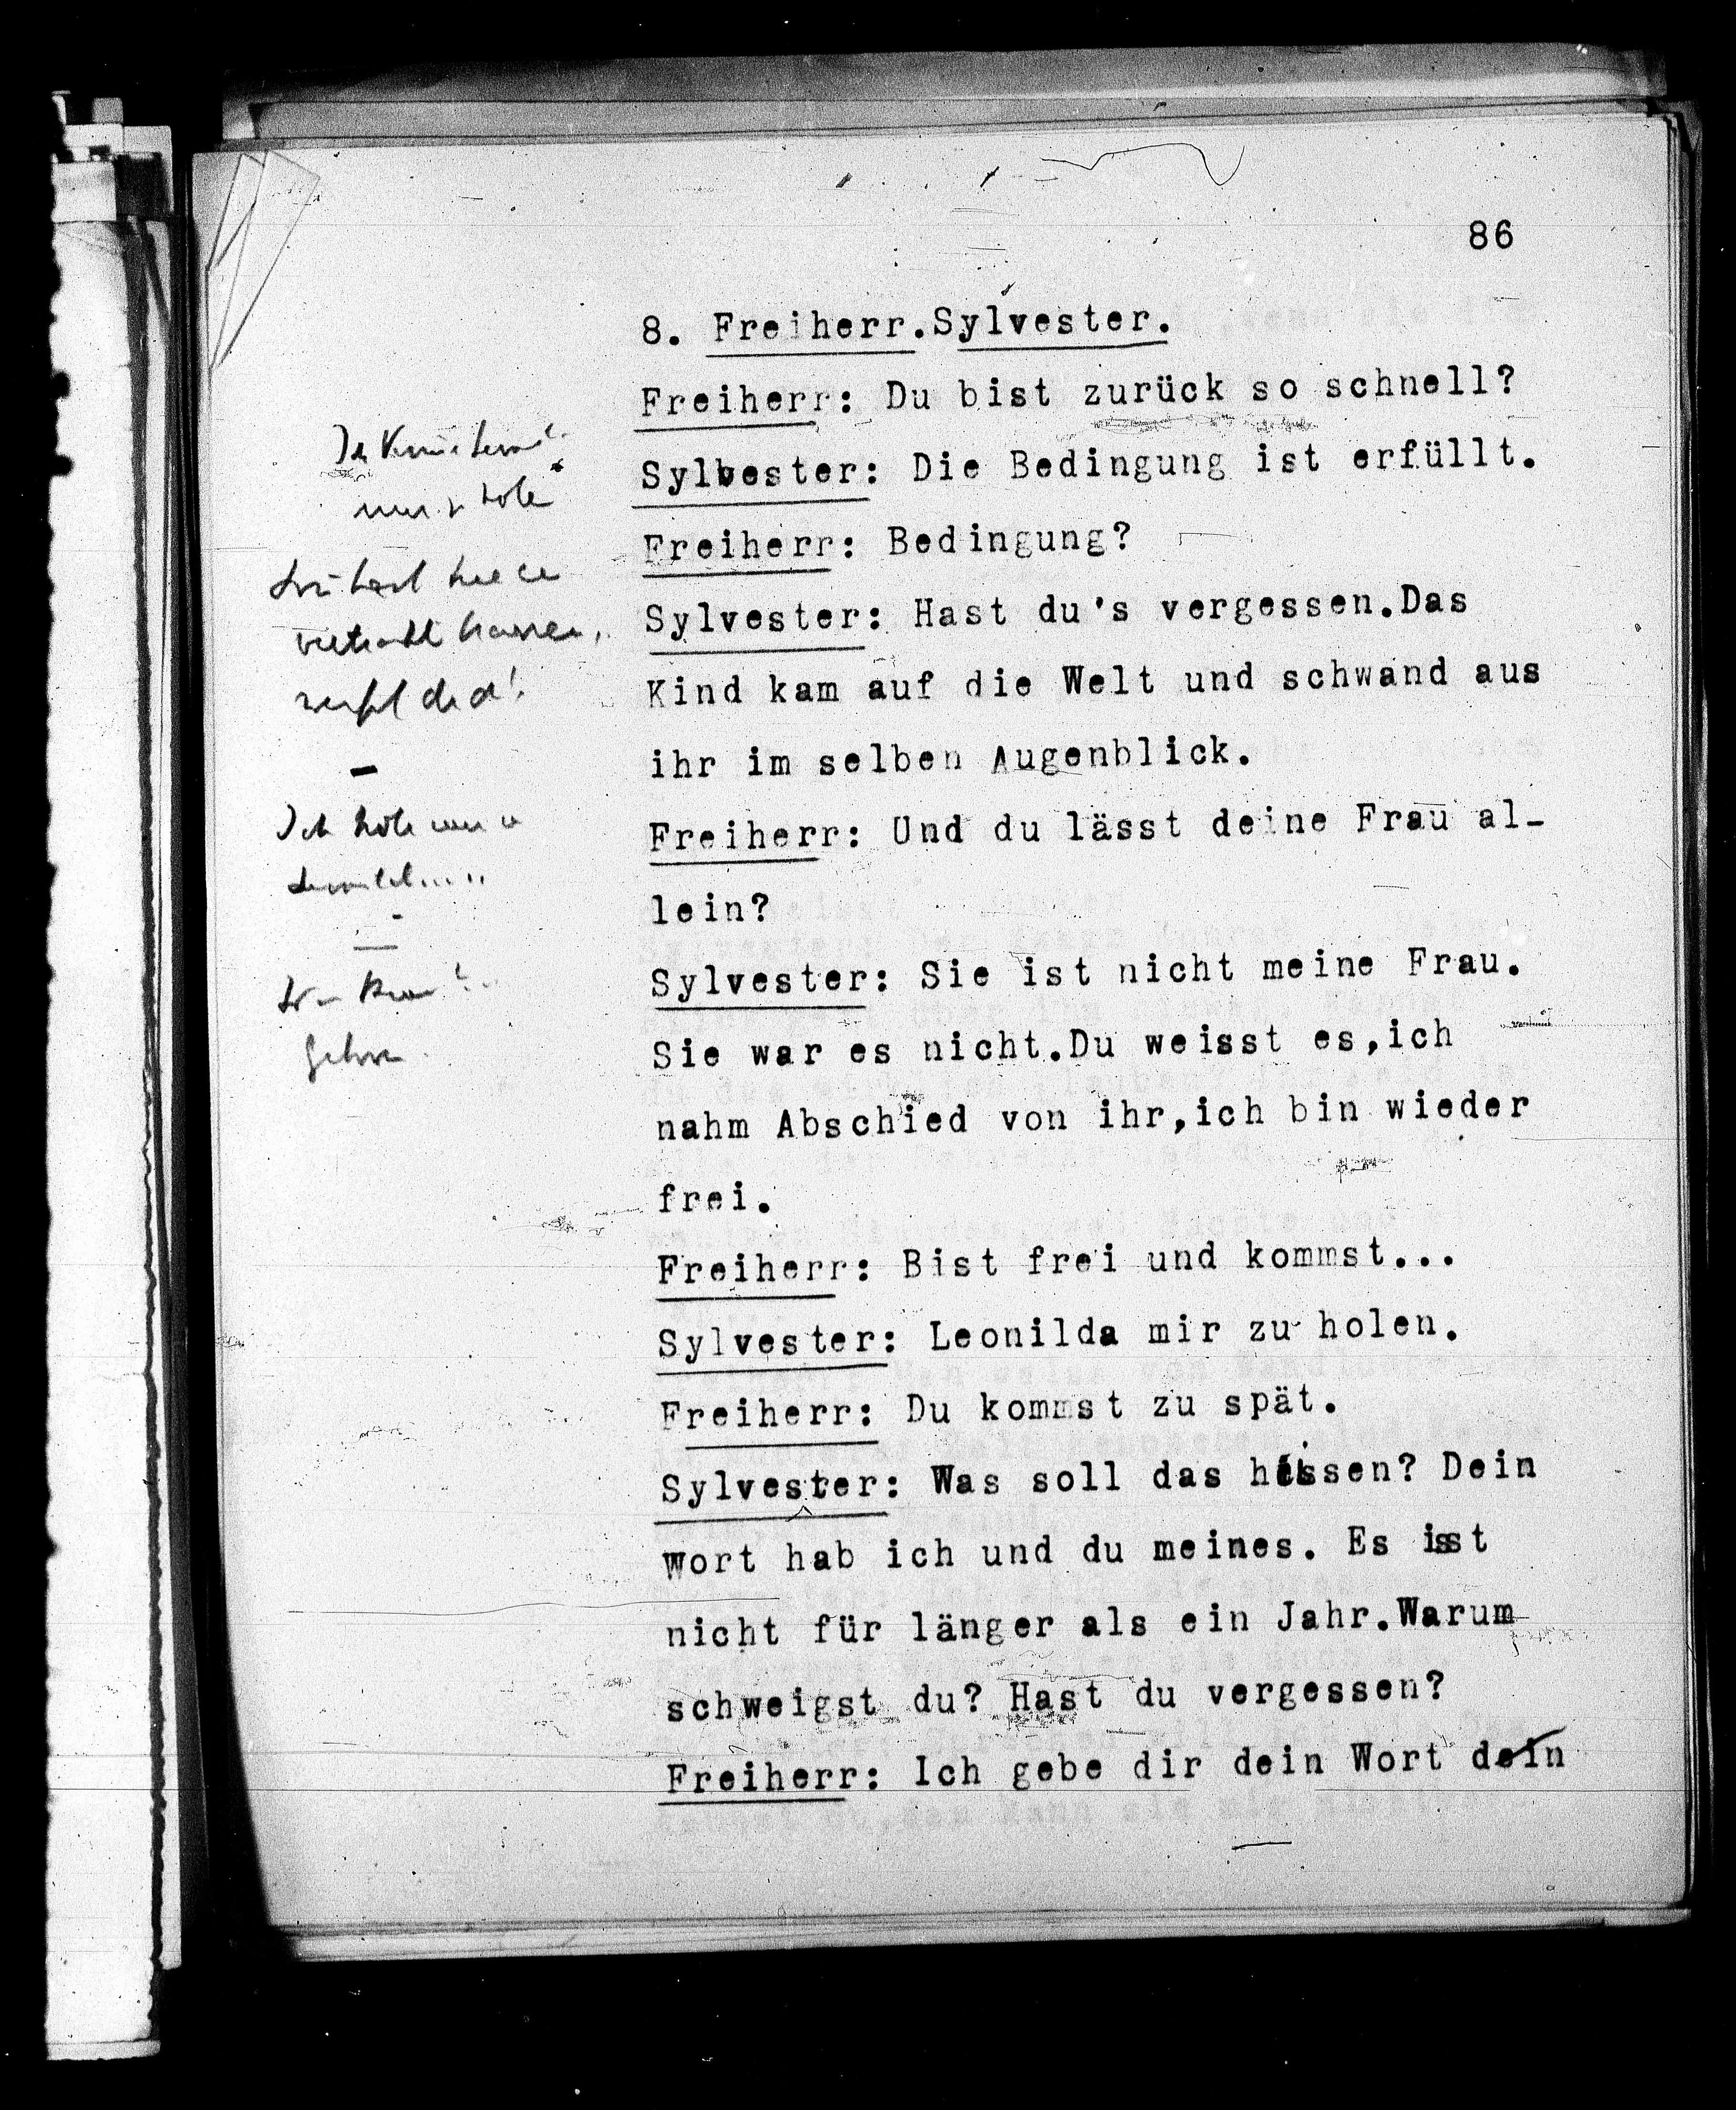 86
8. Freiherr.Sylvester.
Freiherr: Du bist zurück so schnell?
Sylvester: Die Bedingung ist erfüllt.
Freiherr: Bedingung?
Sylvester: Hast du's vergessen.Das
Kind kam auf die Welt und schwand aus
ihr im selben Augenblick.
Freiherr: Und du lässt deine Frau al-
lein?
Sylvester: Sie ist nicht meine Frau.
Sie war es nicht.Du weisst es,ich
nahm Abschied von ihr,ich bin wieder
frei.
Freiherr: Bist frei und kommst...
Sylvester: Leonilda mir zu holen.
Freiherr: Du kommst zu spät.
Sylvester: Was soll das heissen? Dein
Wort hab ich und du meines. Es ist
nicht für länger als ein Jahr.Warum
schweigst du? Hast du vergessen?
Freiherr: Ich gebe dir dein Wort dein